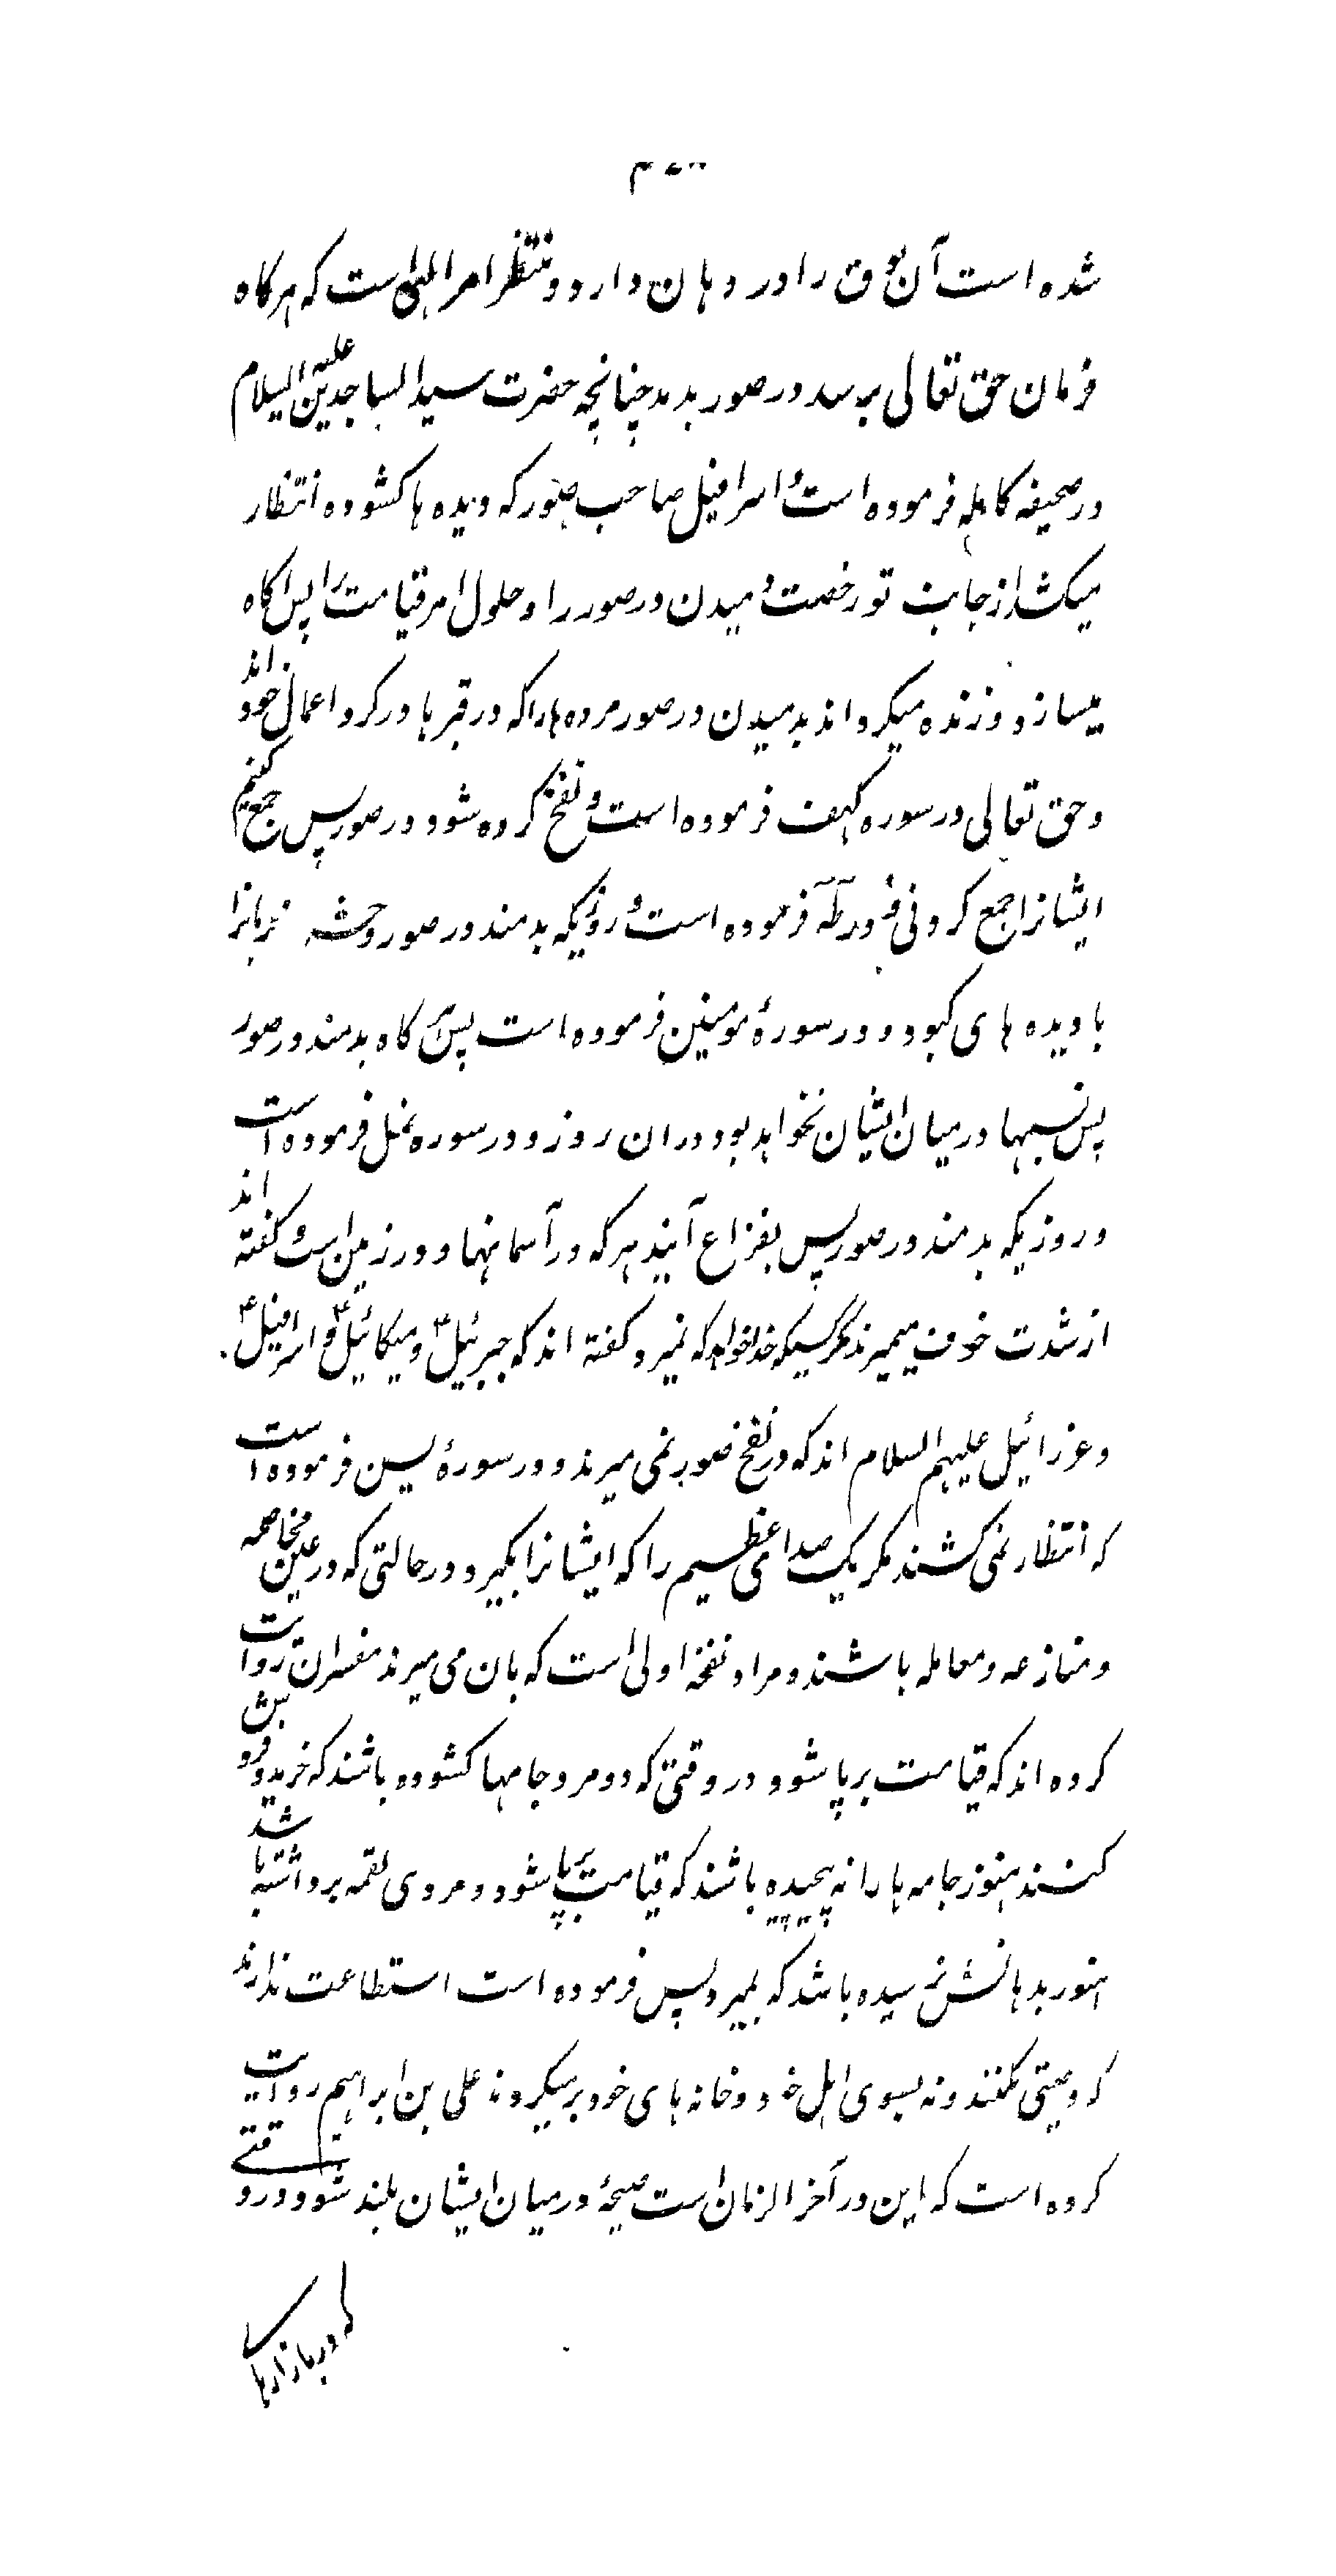 شده است آن بوق را در دهان دارد و منتظر امر الهی است که هرگاه
فرمان حق تعالی برسد در صور بدمد چنانچه حضرت سید الساجدین علیه السلام
در صحیفه کامله فرموده است و اسرافیل صاحب صور که دیده ها کشوده انتظار
میکشد از جانب تو رخصت دمیدن در صور را و حلول امر قیامت را پس آگاه
میسازد و زنده میگرداند بدمیدن در صور مرده ها را که در قبرها در گرو اعمال خود اند
و حق تعالی در سوره کهف فرموده است و نفخ کرده شود در صور پس جمع کنیم
ایشانرا جمع کردنی و در طه فرموده است و روزیکه بدمند در صور و حشر
با دیده های کبود و در سورهٔ مومنین فرموده است پس هرگاه بدمند در صور
پس نسبها در میان ایشان نخواهد بود در ان روز و در سوره نمل فرموده است
و روزیکه بدمند در صور پس بفزع آیند هر که در آسمانها و در زمین است گفته اند
از شدت خوف میمیرند مگر کسیکه خدا خواهد که نمیرد و گفته اند که جبرئیل ع و میکائیل ع و اسرافیل ع
و عزرائیل علیهم السلام اند که در نفخ صور نمی میرند و در سورهٔ یسن فرموده است
که انتظار نمی کشند مگر یک صدای عظیم را که ایشانرا بگیرد در حالتی که در عین مخاصمه
و منازعه و معامله باشند و مراد نفخه اولی است که بان می میرند مفسران روایت
کرده اند که قیامت برپا شود در وقتی که دو مرد جامها کشوده باشند که خرید و فروش
کنند هنوز جامه ها را نه پیچیده باشند که قیامت برپا شود و مردی لقمه برداشته باشد
هنوز بدهانش نرسیده باشد که بمیرد پس فرموده است استطاعت ندارند
که وصیتی بکنند و نه بسوی اهل خود و خانه های خود برمیگردند علی بن ابراهیم روایت
کرده است که این در آخر الزمان است صیحهٔ در میان ایشان بلند شود در وقتے
که در بازارها